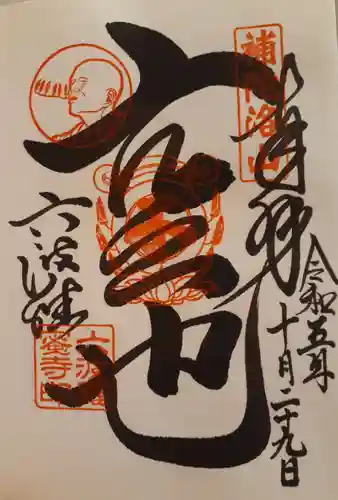 補陀洛山
奉拝
令和五年
十月二十九日
六波羅
空也
六波羅
蜜寺印